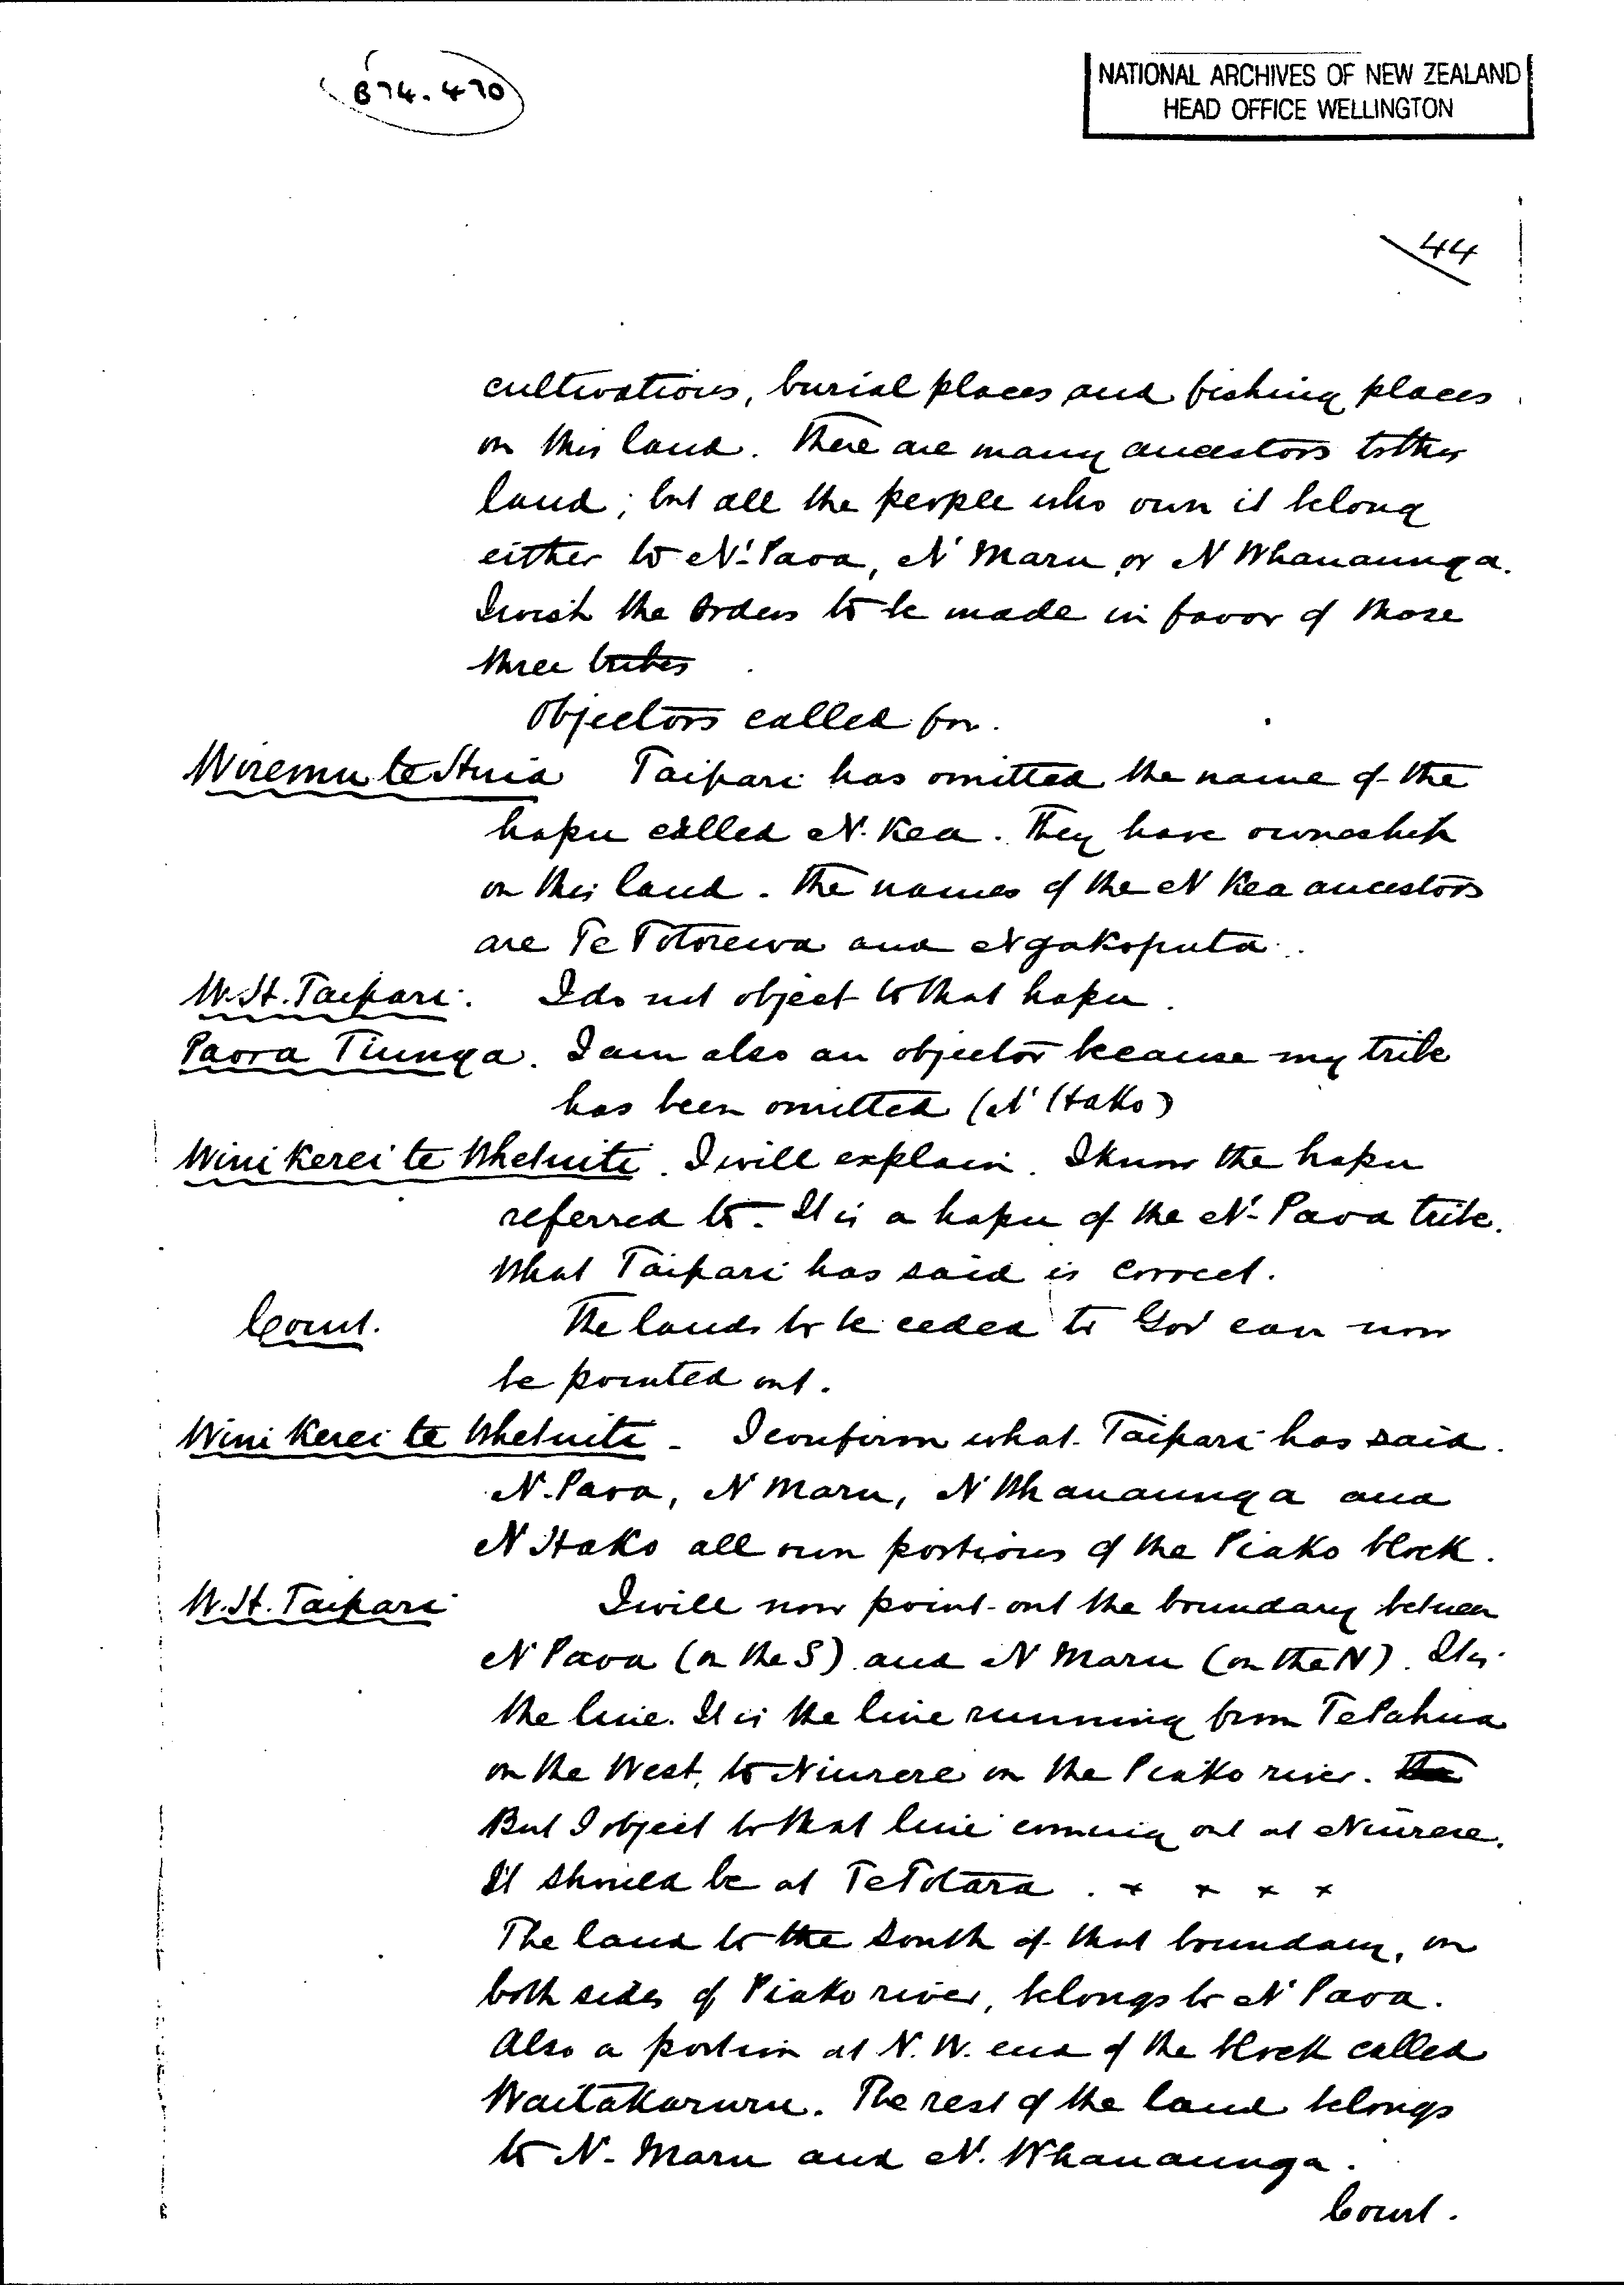 B74.470
NATIONAL ARCHIVES OF NEW ZEALAND
HEAD OFFICE WELLINGTON
44
cultivations, burial places and fishing places
on this land. There are many ancestors to this
land; but all the people who own it belong
either to N'Paoa, N'Maru or N Whanaunga.
I wish the orders to be made in favor of those
three tribes
Objectors called for.
Wiremu te Huia Taipari has omitted the name of the
hapu called N. Kea. They have ownership
on this land. The names of the N Kea ancestors
are Te Totorewa and Ngakoputa.
W.H. Taipari. I do not object to that hapu.
Paora Tiunga. I am also an objector because my tribe
has been omitted (N'Hako)
Wini Kerei te Whetuiti. I will explain. I know the hapu
referred to. It is a hapu of the N' Paoa tribe.
What Taipari has said is correct.
Court. The lands to be ceded to Gov' can now
be pointed out.
Wini Kerei te Whetuiti - I confirm what Taipari has said.
N. Paoa, N Maru, N Whanaunga and
N Hako all own portions of the Piako block.
W.H. Taipari I will now point out the boundary between
N Paoa (on the S) and N Maru (on the N). It is
the line. It is the line running from Te Pahua
on the West, to Niurere on the Piako river. The
But I object to that line coming out at Niurere.
It should be at Te Totara. x x x x
The land to the South of that boundary, on
both sides of Piako river, belongs to N' Paoa.
Also a portion at N.W. end of the block called
Waitakaruru. The rest of the land belongs
to N. Maru and N. Whanaunga.
Court.